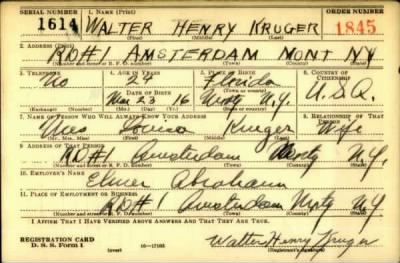 SERIAL NUMBER 1. NAME (Print) ORDER NUMBER
1614 WALTER HENRY KRUGER 1845
(First) (Middle) (Last)
2. ADDRESS (Print)
RD#1 AMSTERDAM MONT NY
(Number and street or R. F. D. number) (Town) (County) (State)
3. TELEPHONE 4. AGE IN YEARS 5. PLACE OF BIRTH 6. COUNTRY OF CITIZENSHIP
No 24 Florida U.S.A.
DATE OF BIRTH
23 16 N.Y.
(Exchange) (Number) (Mo.) (Day) (Yr.) (Town or county) (State or country)
7. NAME OF PERSON WHO WILL ALWAYS KNOW YOUR ADDRESS 8. RELATIONSHIP OF THAT PERSON
Mrs Louisa Kruger Wife
(Mr., Mrs., Miss) (First) (Middle) (Last)
9. ADDRESS OF THAT PERSON
RD#1 Amsterdam Mntg N.Y.
(Number and street or R. F. D. number) (Town) (County) (State)
10. EMPLOYER'S NAME
Elmer Abraham
11. PLACE OF EMPLOYMENT OR BUSINESS
RD#1 Amsterdam Mntg N.Y.
(Number and street or R. F. D. number) (Town) (County) (State)
I AFFIRM THAT I HAVE VERIFIED ABOVE ANSWERS AND THAT THEY ARE TRUE.
REGISTRATION CARD
D. S. S. Form 1 16—17105 Walter Henry Kruger
(Registrant's signature)